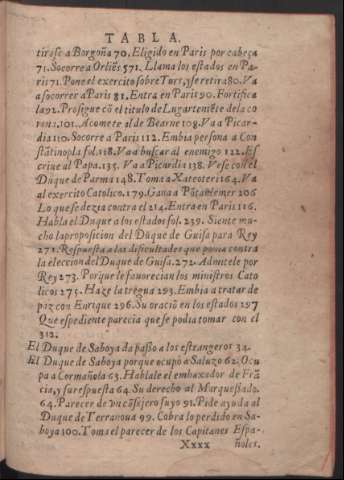 TABLA.
tirose a Borgoña 70. Eligido en Paris por cabeça
71. Socorre a Orliẽs 571. Llama los estados en Pa-
ris 71. Pone el exercito sobre Turs, y se retira 80. Va
a socorrer a Paris 81. Entra en Paris 90. Fortifica
la 92. Prosigue cõ el titulo de Lugarteniẽte de la co
rona. 101. Acomete al de Bearne 108. Va a Picar-
dia 110. Socorre a Paris 112. Embia persona a Con
stãtinopla fol. 118. Va a buscar al enemigo 122. Es
criue al Papa. 135. Va a Picardia 138. Vese con el
Duque de Parma 148. Toma a Xateoteri 164. Va
al exercito Catolico. 179. Gana a Põtandemer 206
Lo que se dezia contra el 214. Entra en Paris 116.
Habla el Duque a los estados fol. 239. Siente mu-
cho la proposicion del Duque de Guisa para Rey
271. Respuesta a las dificultades que ponia contra
la eleccion del Duque de Guisa. 272. Admitele por
Rey 273. Porque le fauorecian los ministros Cato
licos 275. Haze la tregua 293. Embia a tratar de
paz con Enrique 296. Su oraciõ en los estados 297
Que espediente parecia que se podia tomar con el
312.
El Duque de Saboya da passo a los estrangeros 34.
El Duque de Saboya porque ocupò a Saluzo 62. Ocu
pa a Carmañola 63. Hablale el embaxador de Frã
cia, y su respuesta 64. Su derecho al Marquesado.
64. Parecer de vn cõsejero suyo 91. Pide ayuda al
Duque de Terranoua 99. Cobra lo perdido en Sa-
boya 100. Toma el parecer de los Capitanes Espa-
Xxxx ñoles.